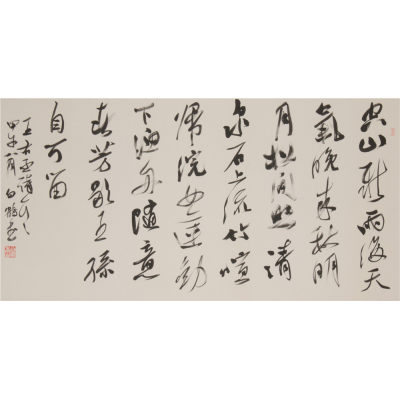 空山新雨後天
氣晚來秋明
月松間照清
泉石上流竹喧
歸浣女蓮動
下漁舟隨意
春芳歇王孫
自可留
王右丞詩
甲午